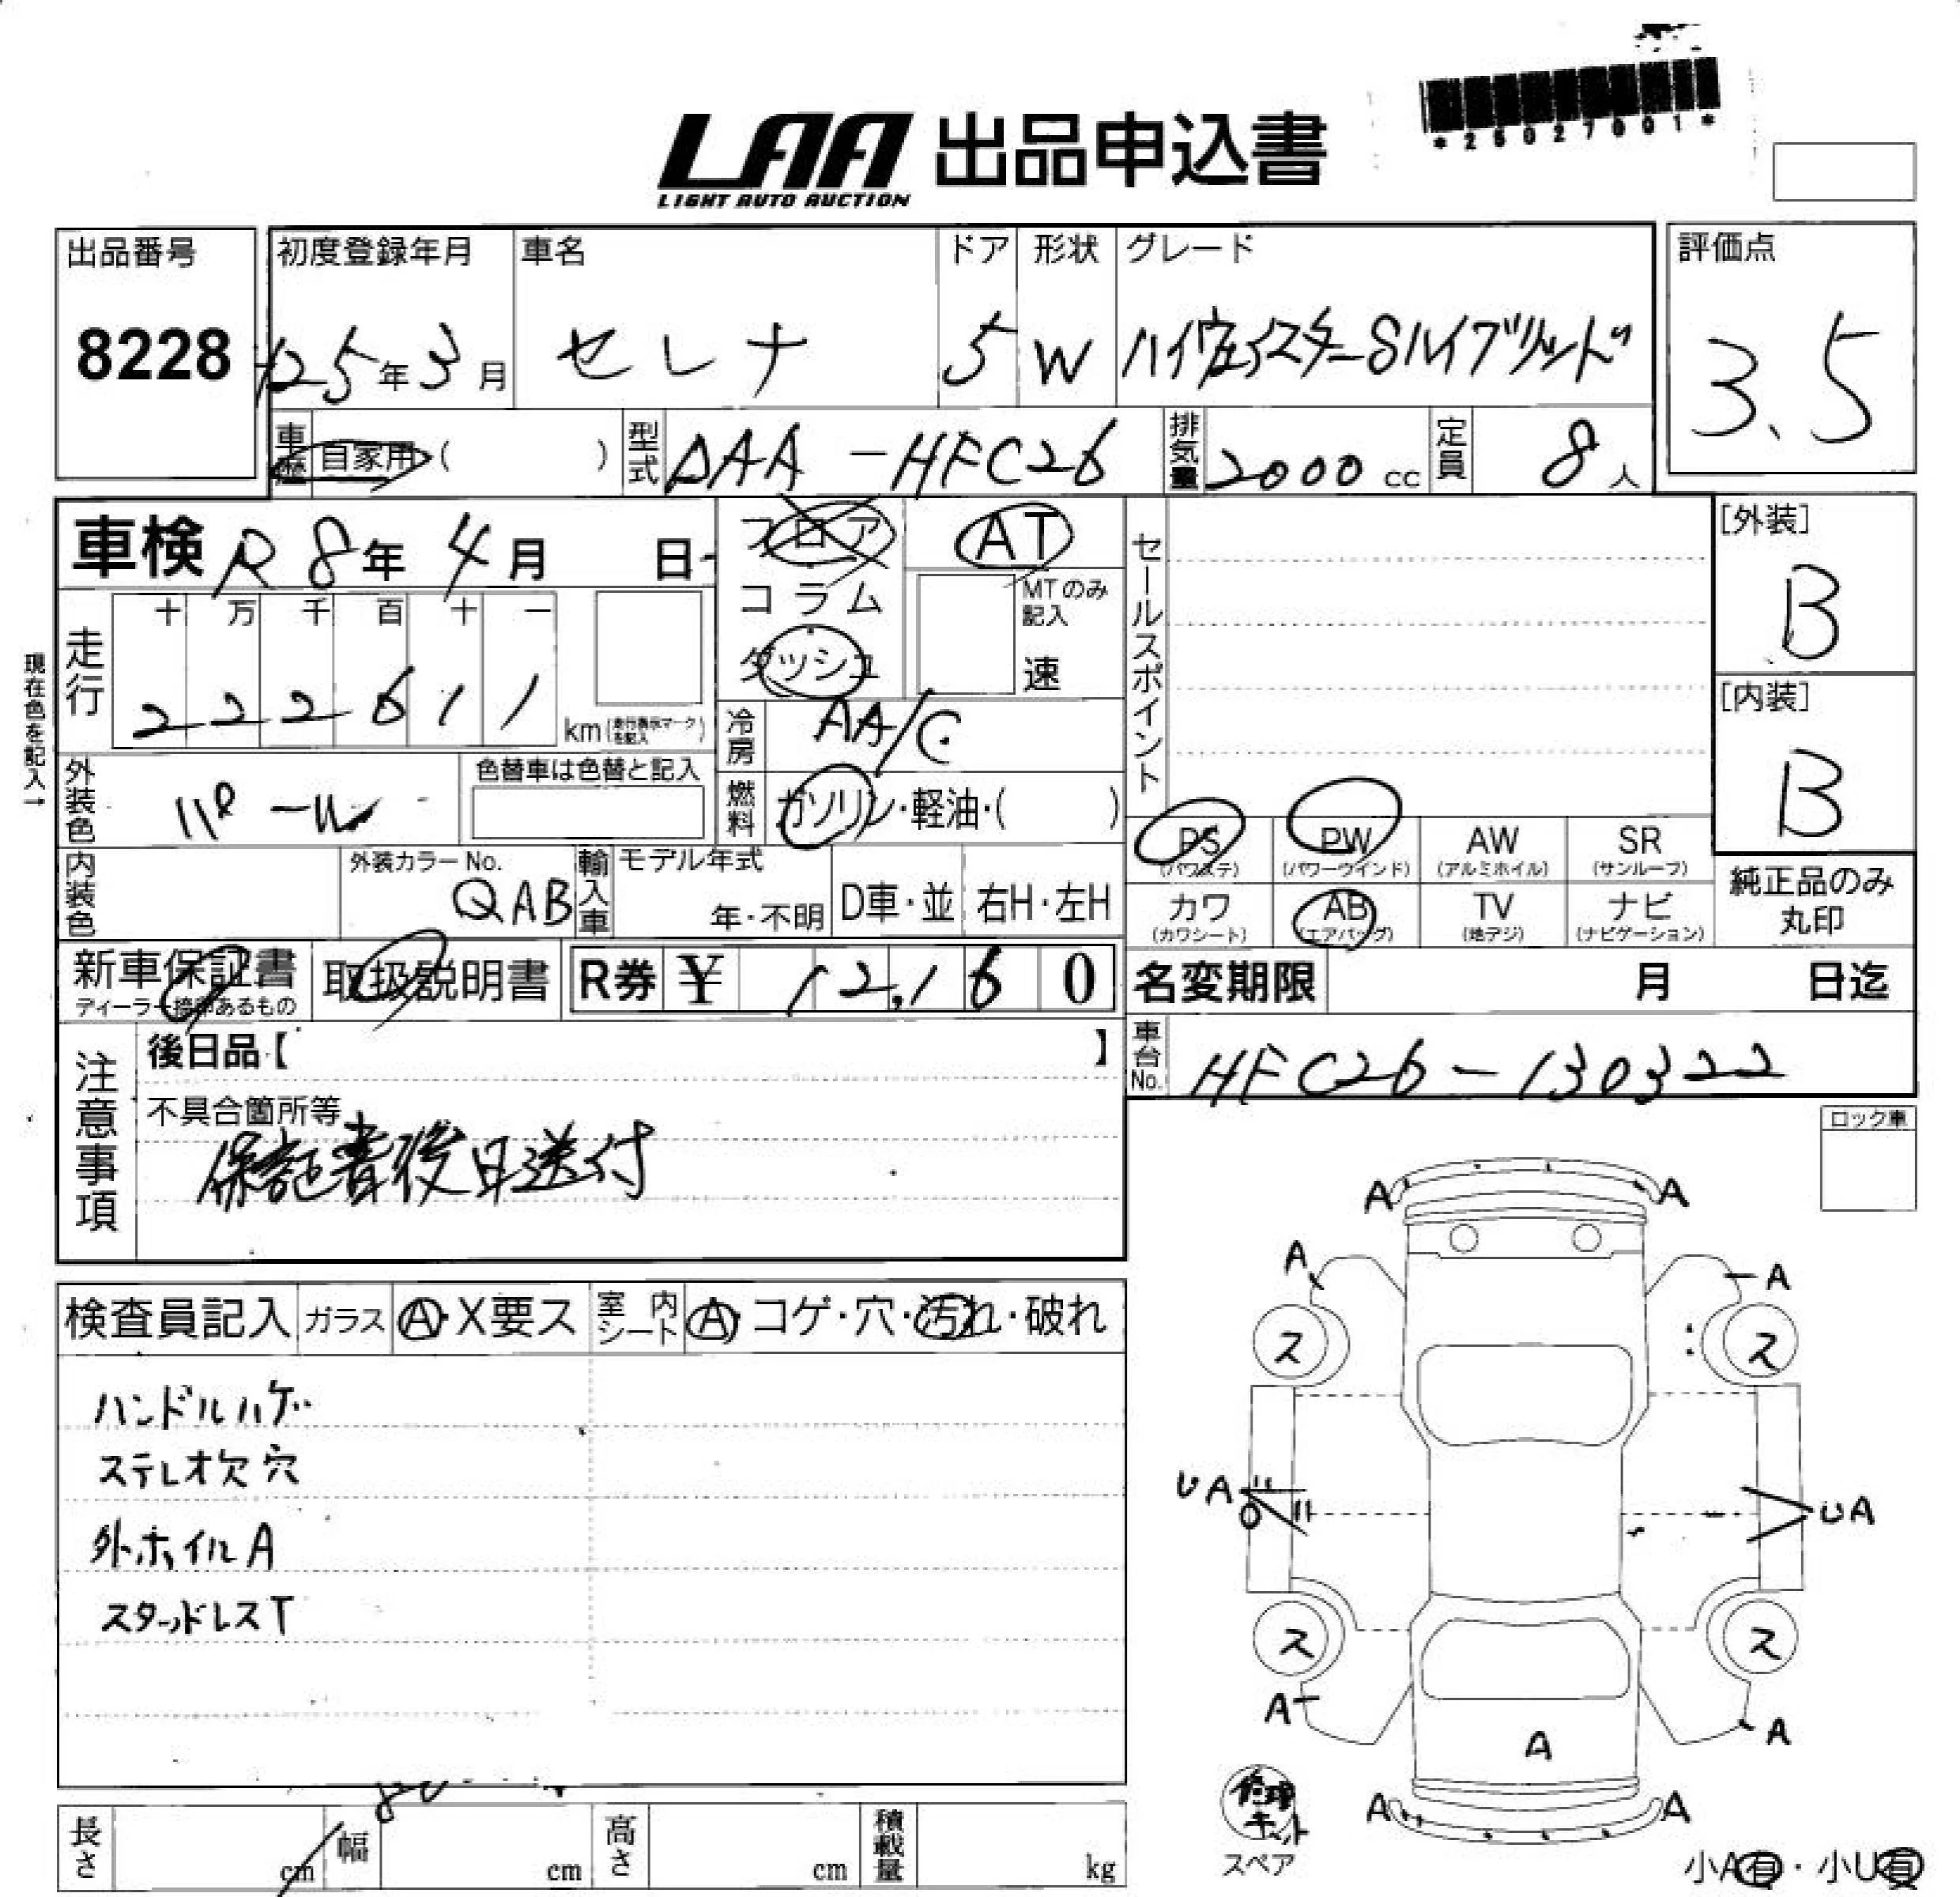 *25027001*
LAA 出品申込書
LIGHT AUTO AUCTION
出品番号
8228
初度登録年月
25年3月
車名
セレナ
ドア
5
形状
W
グレード
ハイウェイスターSハイブリッド
評価点
3.5
車歴 自家用 ( )
型式 DAA-HFC26
排気量 2000cc
定員 8人
車検 R8年4月 日
フロア
コラム
ダッシュ
AT
MTのみ記入
速
セールスポイント
[外装]
B
[内装]
B
現在色を記入→
走行
十 万 千 百 十 一
2 2 2 6 1 1 km(走行表示マークを記入)
冷房 AA/C
外装色 パール
色替車は色替と記入
燃料 ガソリン・軽油・( )
PS (パワステ)
PW (パワーウインド)
AW (アルミホイル)
SR (サンルーフ)
カワ (カワシート)
AB (エアバッグ)
TV (地デジ)
ナビ (ナビゲーション)
純正品のみ
丸印
内装色
外装カラーNo.
QAB
輸入車
モデル年式
年・不明
D車・並
右H・左H
新車保証書
ディーラー捺印あるもの
取扱説明書
R券 ¥ 12,160
名変期限 月 日迄
車台No. HFC26-130322
注意事項
後日品【 】
不具合箇所等
保証書後日送付
ロック車
検査員記入
ガラス A・X要ス
室内シート A・コゲ・穴・汚れ・破れ
ハンドルハゲ
ステレオ欠穴
外ホイルA
スタッドレスT
A A
A A
ス ス
UA UA
ス ス
A A
A
A A
修理キット
スペア
小A有・小U有
長さ cm
幅 cm
高さ cm
積載量 kg